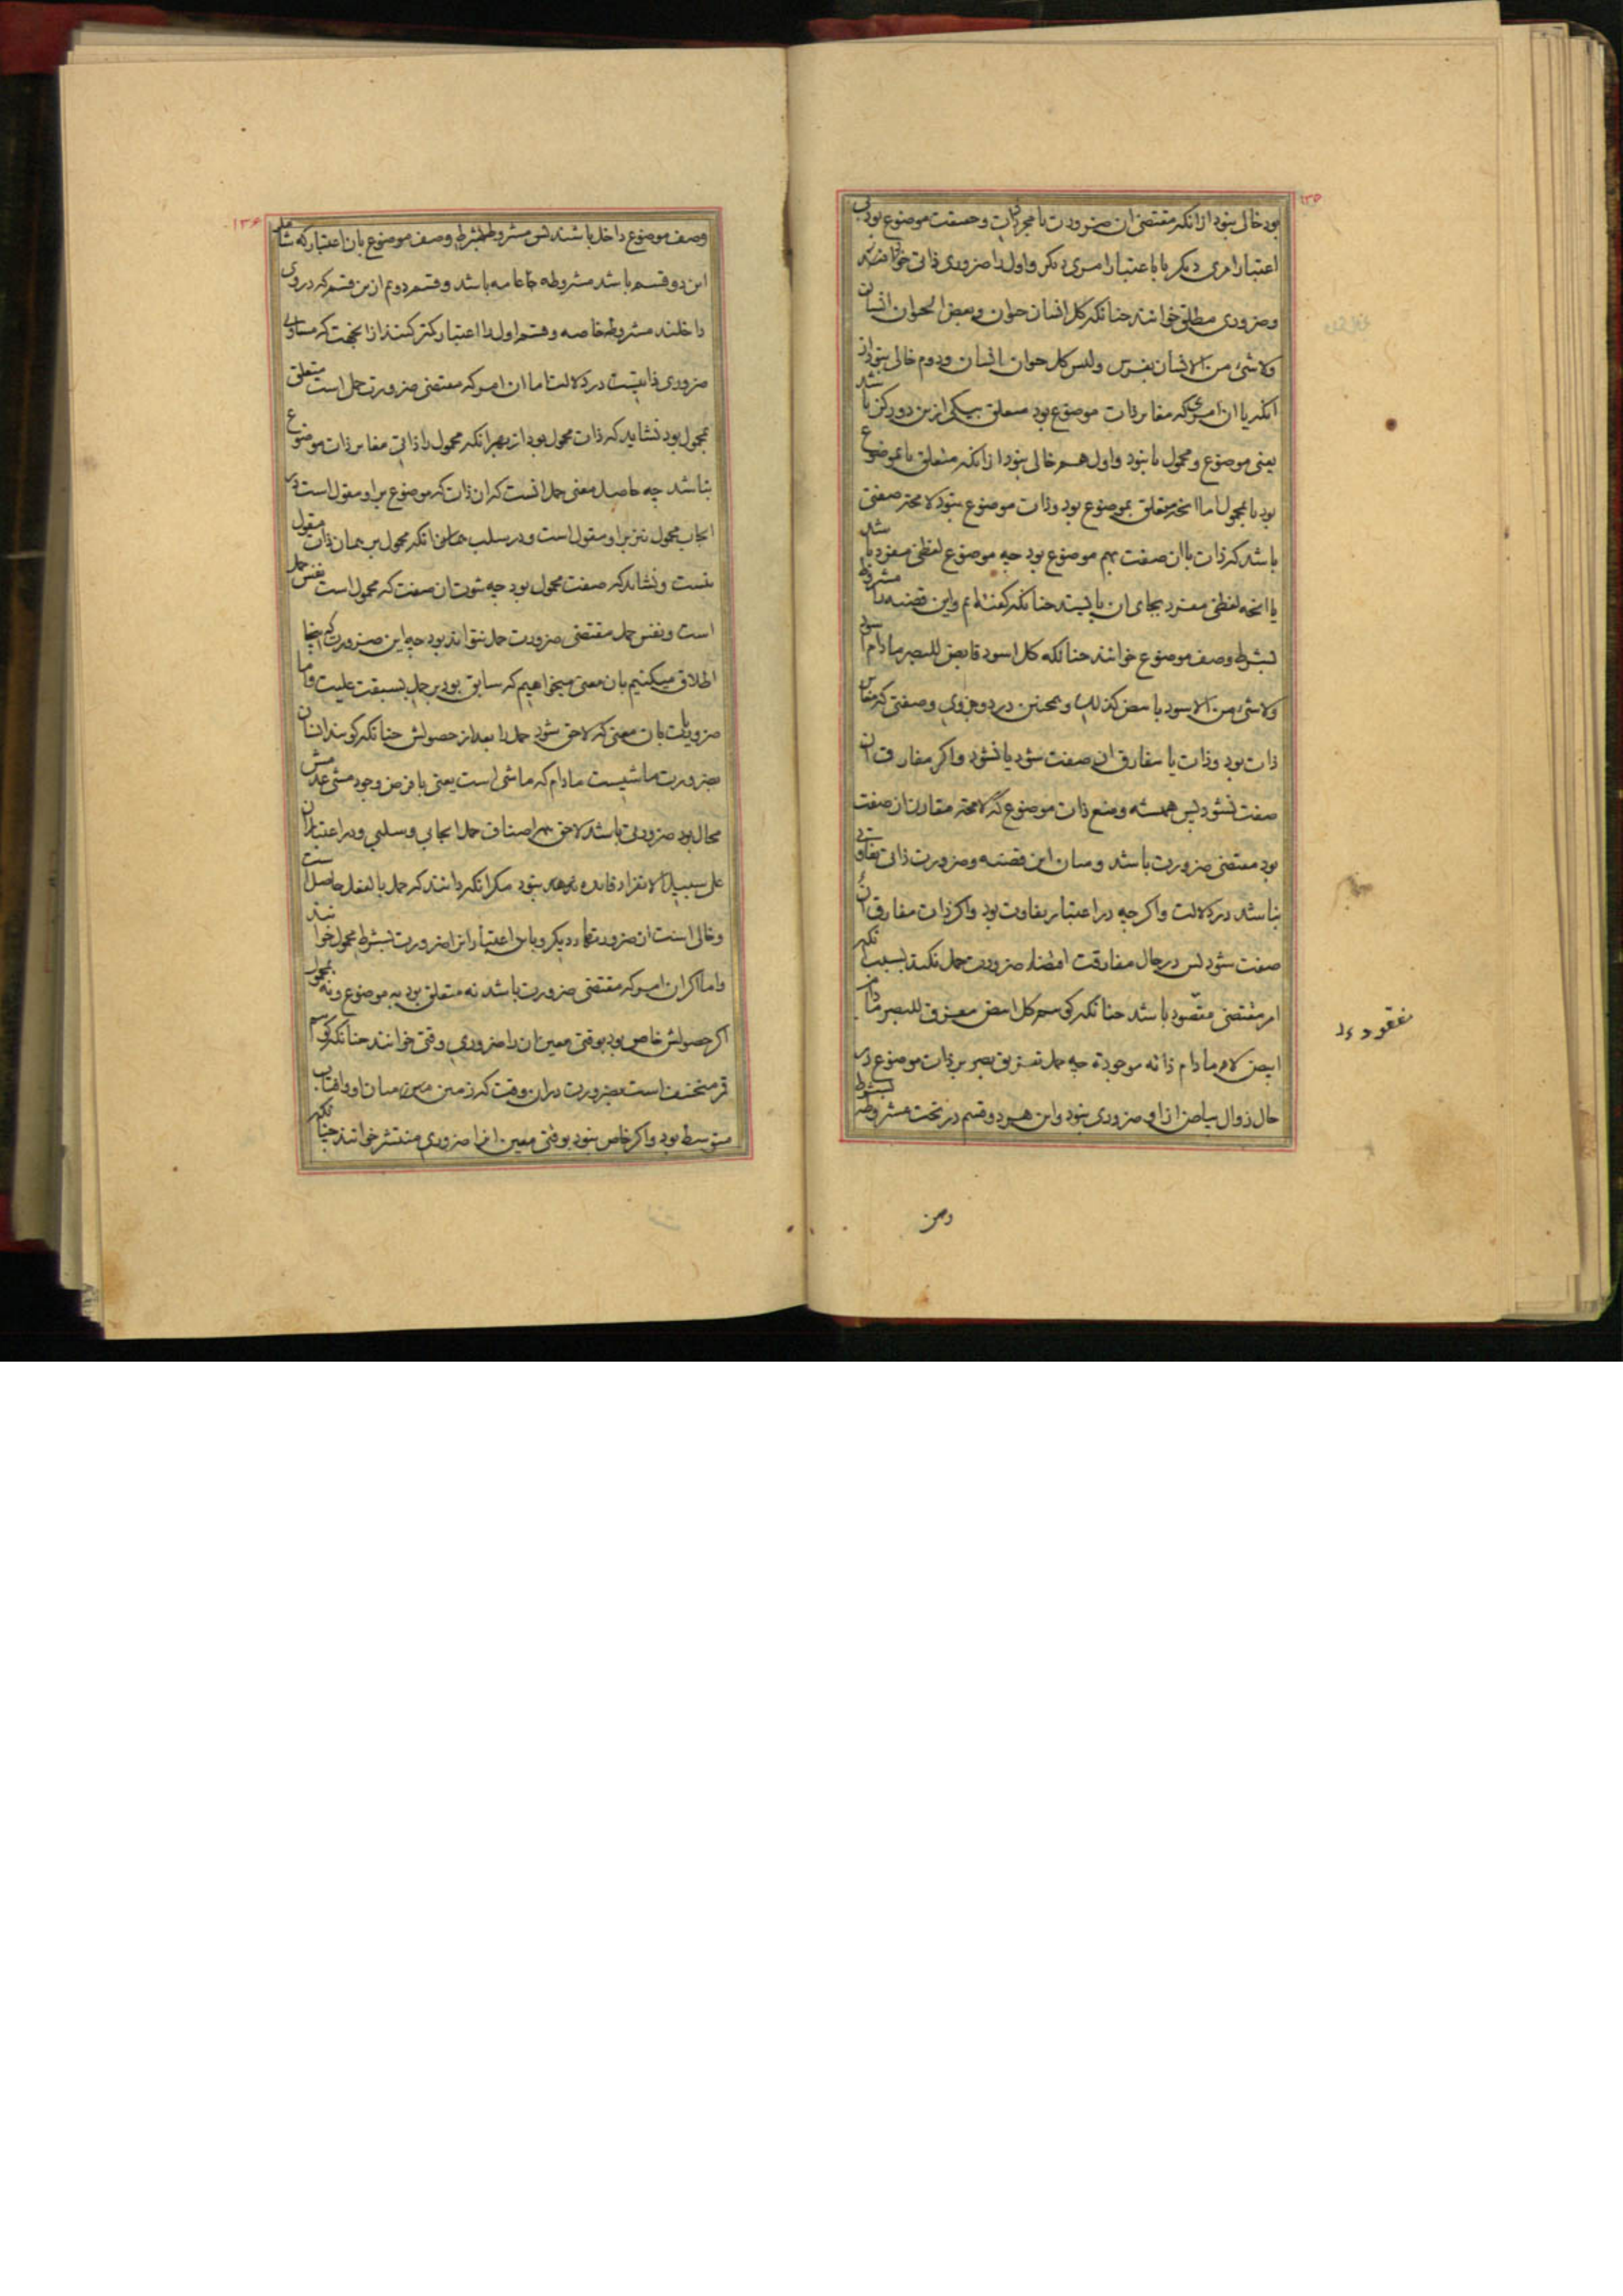 ۱۳۵
بود خالی نبود از انکه مقتضی ان ضرورت یا مجرد ذات و حقیقت موضوع بود بی
اعتبار امری دیکر یا باعتبار امری دیکر و اول را ضروری ذاتی خوانند
و ضروری مطلق خوانند چنانکه کل انسان حیوان و بعض الحیوان انسان
ولا شیء من الانسان بفرس و لیس کل حیوان انسان و دوم خالی نبود از
انکه یا ان امور که مغایر ذات موضوع بود متعلق بیکی ازین دو رکن باشد
یعنی موضوع و محمول یا نبود و اول هم خالی نبود از انکه متعلق یا بموضوع
بود یا بمحمول اما انچه متعلق بموضوع بود و ذات موضوع نبود لا محته صفتی
باشد که ذات با ان صفت بهم موضوع بود چه موضوع لفظی مفرد باشد
یا انچه لفظی مفرد بجای ان بایستد چنانکه کفته ایم و این قضیه را مشروطه
بشرط وصف موضوع خوانند چنانکه کل اسود قابض للبصر مادام اسود
ولا شیء من الاسود بابیض کذلک و همچنین در دو جزوی و صفتی که مغایر
ذات بود و ذات یا مفارق ان صفت شود یا نشود و اکر مفارق ان
صفت نشود پس همیشه وضع ذات موضوع که لا محته مقارن ان صفت
بود مقتضی ضرورت باشد و میان این قضیه و ضرورت ذاتی تفاوتی
نباشد در دلالت و اکر چه در اعتبار تفاوت بود و اکر ذات مفارق ان
صفت شود پس در حال مفارقت اقتضاء ضرورت حمل نکند بسبب انکه
امر مقتضی مفقود باشد چنانکه کوییم کل ابیض مفرق للبصر مادام
ابیض لا مادام ذاته موجودة چه حمل تفریق بصر بر ذات موضوع در
حال زوال بیاض از او ضروری نبود و این هر دو قسم در تحت مشروطه بشرط
مفقود
وصف
۱۳۶
وصف موضوع داخل باشند پس مشروطه بشرط وصف موضوع بان اعتبار که شامل
این دو قسم باشد مشروطه عامه باشد و قسم دوم ازین قسم که در وی
داخلند مشروطه خاصه و قسم اول را اعتبار کمتر کنند از انجهت که مساوی
ضروری ذاتیست در دلالت اما ان امور که مقتضی ضرورت حمل است متعلق
بمحمول بود نشاید که ذات محمول بود از بهر انکه محمول را ذاتی مغایر ذات موضوع
نباشد چه حاصل معنی حمل انست که ان ذات که موضوع بر او مقول است در
ایجاب محمول نیز بر او مقول است و در سلب چنانکه محمول بر همان ذات مقول
نیست و نشاید که صفت محمول بود چه ثبوت ان صفت که محمول است نفس حمل
است و نفس حمل مقتضی ضرورت حمل نتواند بود چه این ضرورت که اینجا
اطلاق میکنیم بان معنی میخواهیم که سابق بود بر حمل بسبقت علیت و اما
ضروریات بان معنی که لاحق شود حمل را بعد از حصولش چنانکه کویند انسان
بضرورت ماشیست مادام که ماشی است یعنی با فرض وجود مشی عدمش
محال بود ضرورتی باشد لاحق بهر اصناف حمل ایجابی و سلبی و در اعتبار ان
علی سبیل الانفراد فایده نبود مکر انکه دانند که حمل بالفعل حاصل است
و خالی است از ضرورتهاء دیکر و باین اعتبار انرا ضرورت بشرط محمول خوانند
و اما اکر ان امور که مقتضی ضرورت باشد نه متعلق بود به موضوع و نه بمحمول
اکر حصولش خاص بود بوقتی معین ان را ضروری وقتی خوانند چنانکه کوییم
قمر منخسف است بضرورت در ان وقت که زمین میان او و افتاب
متوسط بود و اکر خاص نبود بوقتی معین انرا ضروری منتشر خوانند چنانکه